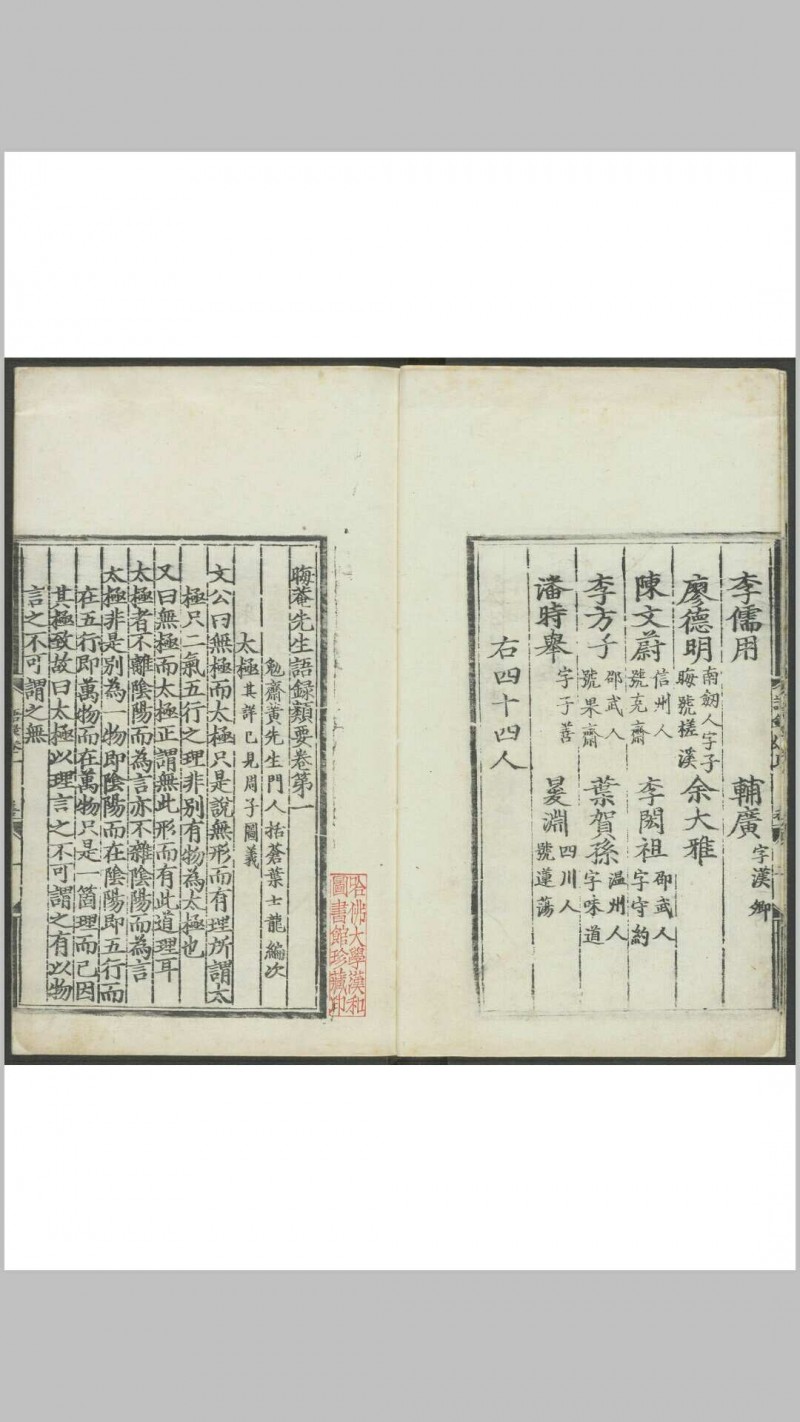 李儒用 輔廣字漢卿
廖德明南劒人字子晦號槎溪 余大雅
陳文蔚信州人號克齋 李閎祖邵武人字守約
李方子邵武人號果齋 葉賀孫温州人字味道
潘時舉字子善 㬊淵四川人號蓮蕩
右四十四人
晦菴先生語録類要卷第一
勉齋黄先生門人括蒼葉士龍編次
太極其詳已見周子圖義
文公曰無極而太極只是說無形而有理所謂太
極只二氣五行之理非别有物為太極也
又曰無極而太極正謂無此形而有此道理耳
太極者不離陰陽而為言亦不雜陰陽而為言
太極非是别為一物即陰陽而在陰陽即五行而
在五行即萬物而在萬物只是一箇理而已因
其極致故曰太極以理言之不可謂之有以物
言之不可謂之無
哈佛大學漢和
圖書館珍藏印